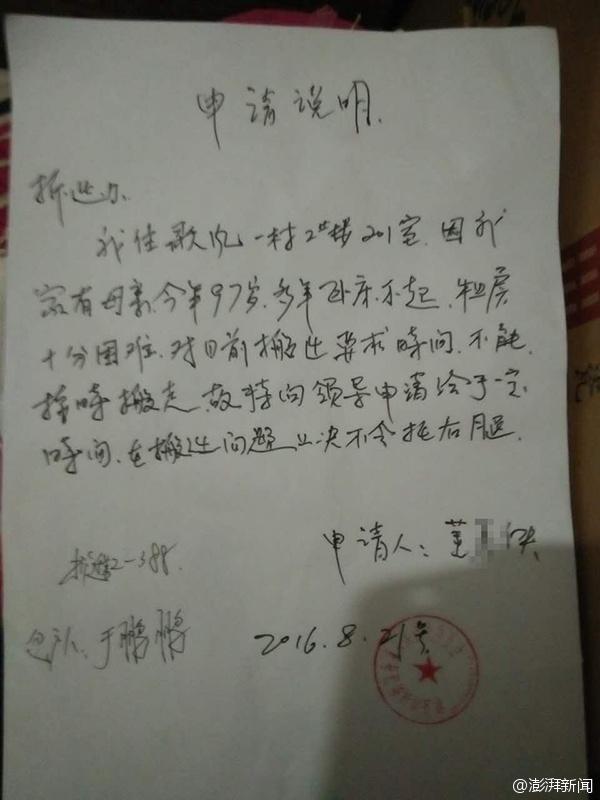 申请说明.
拆迁办.
我住歌风一村2#楼201室.因我
家有母亲今年97岁.多年卧床不起.租房
十分困难.对目前搬迁要求时间.不能.
按时搬走.故特向领导申请给予一定
时间.在搬迁问题上决不会拖后腿.
申请人:董
拆迁2-388.
包户人:于鹏鹏
2016.8.21号
@澎湃新闻